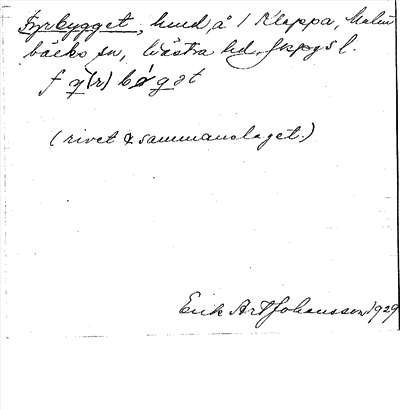 Fyrbygget, lund, å 1 Klappa, Malm
bäcks sn, Västra hd, Jkpgs l.
f y(r) bygət
(rivet & sammanslaget.)
Erik Art Johansson 1929